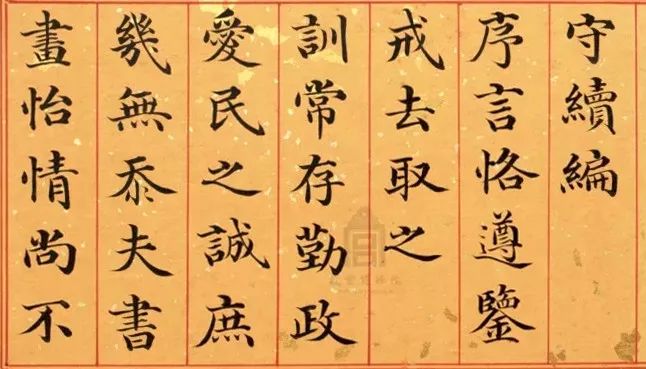 守續編
序言恪遵鑒
戒去取之
訓常存勤政
愛民之誠庶
幾無忝夫書
畫怡情尚不